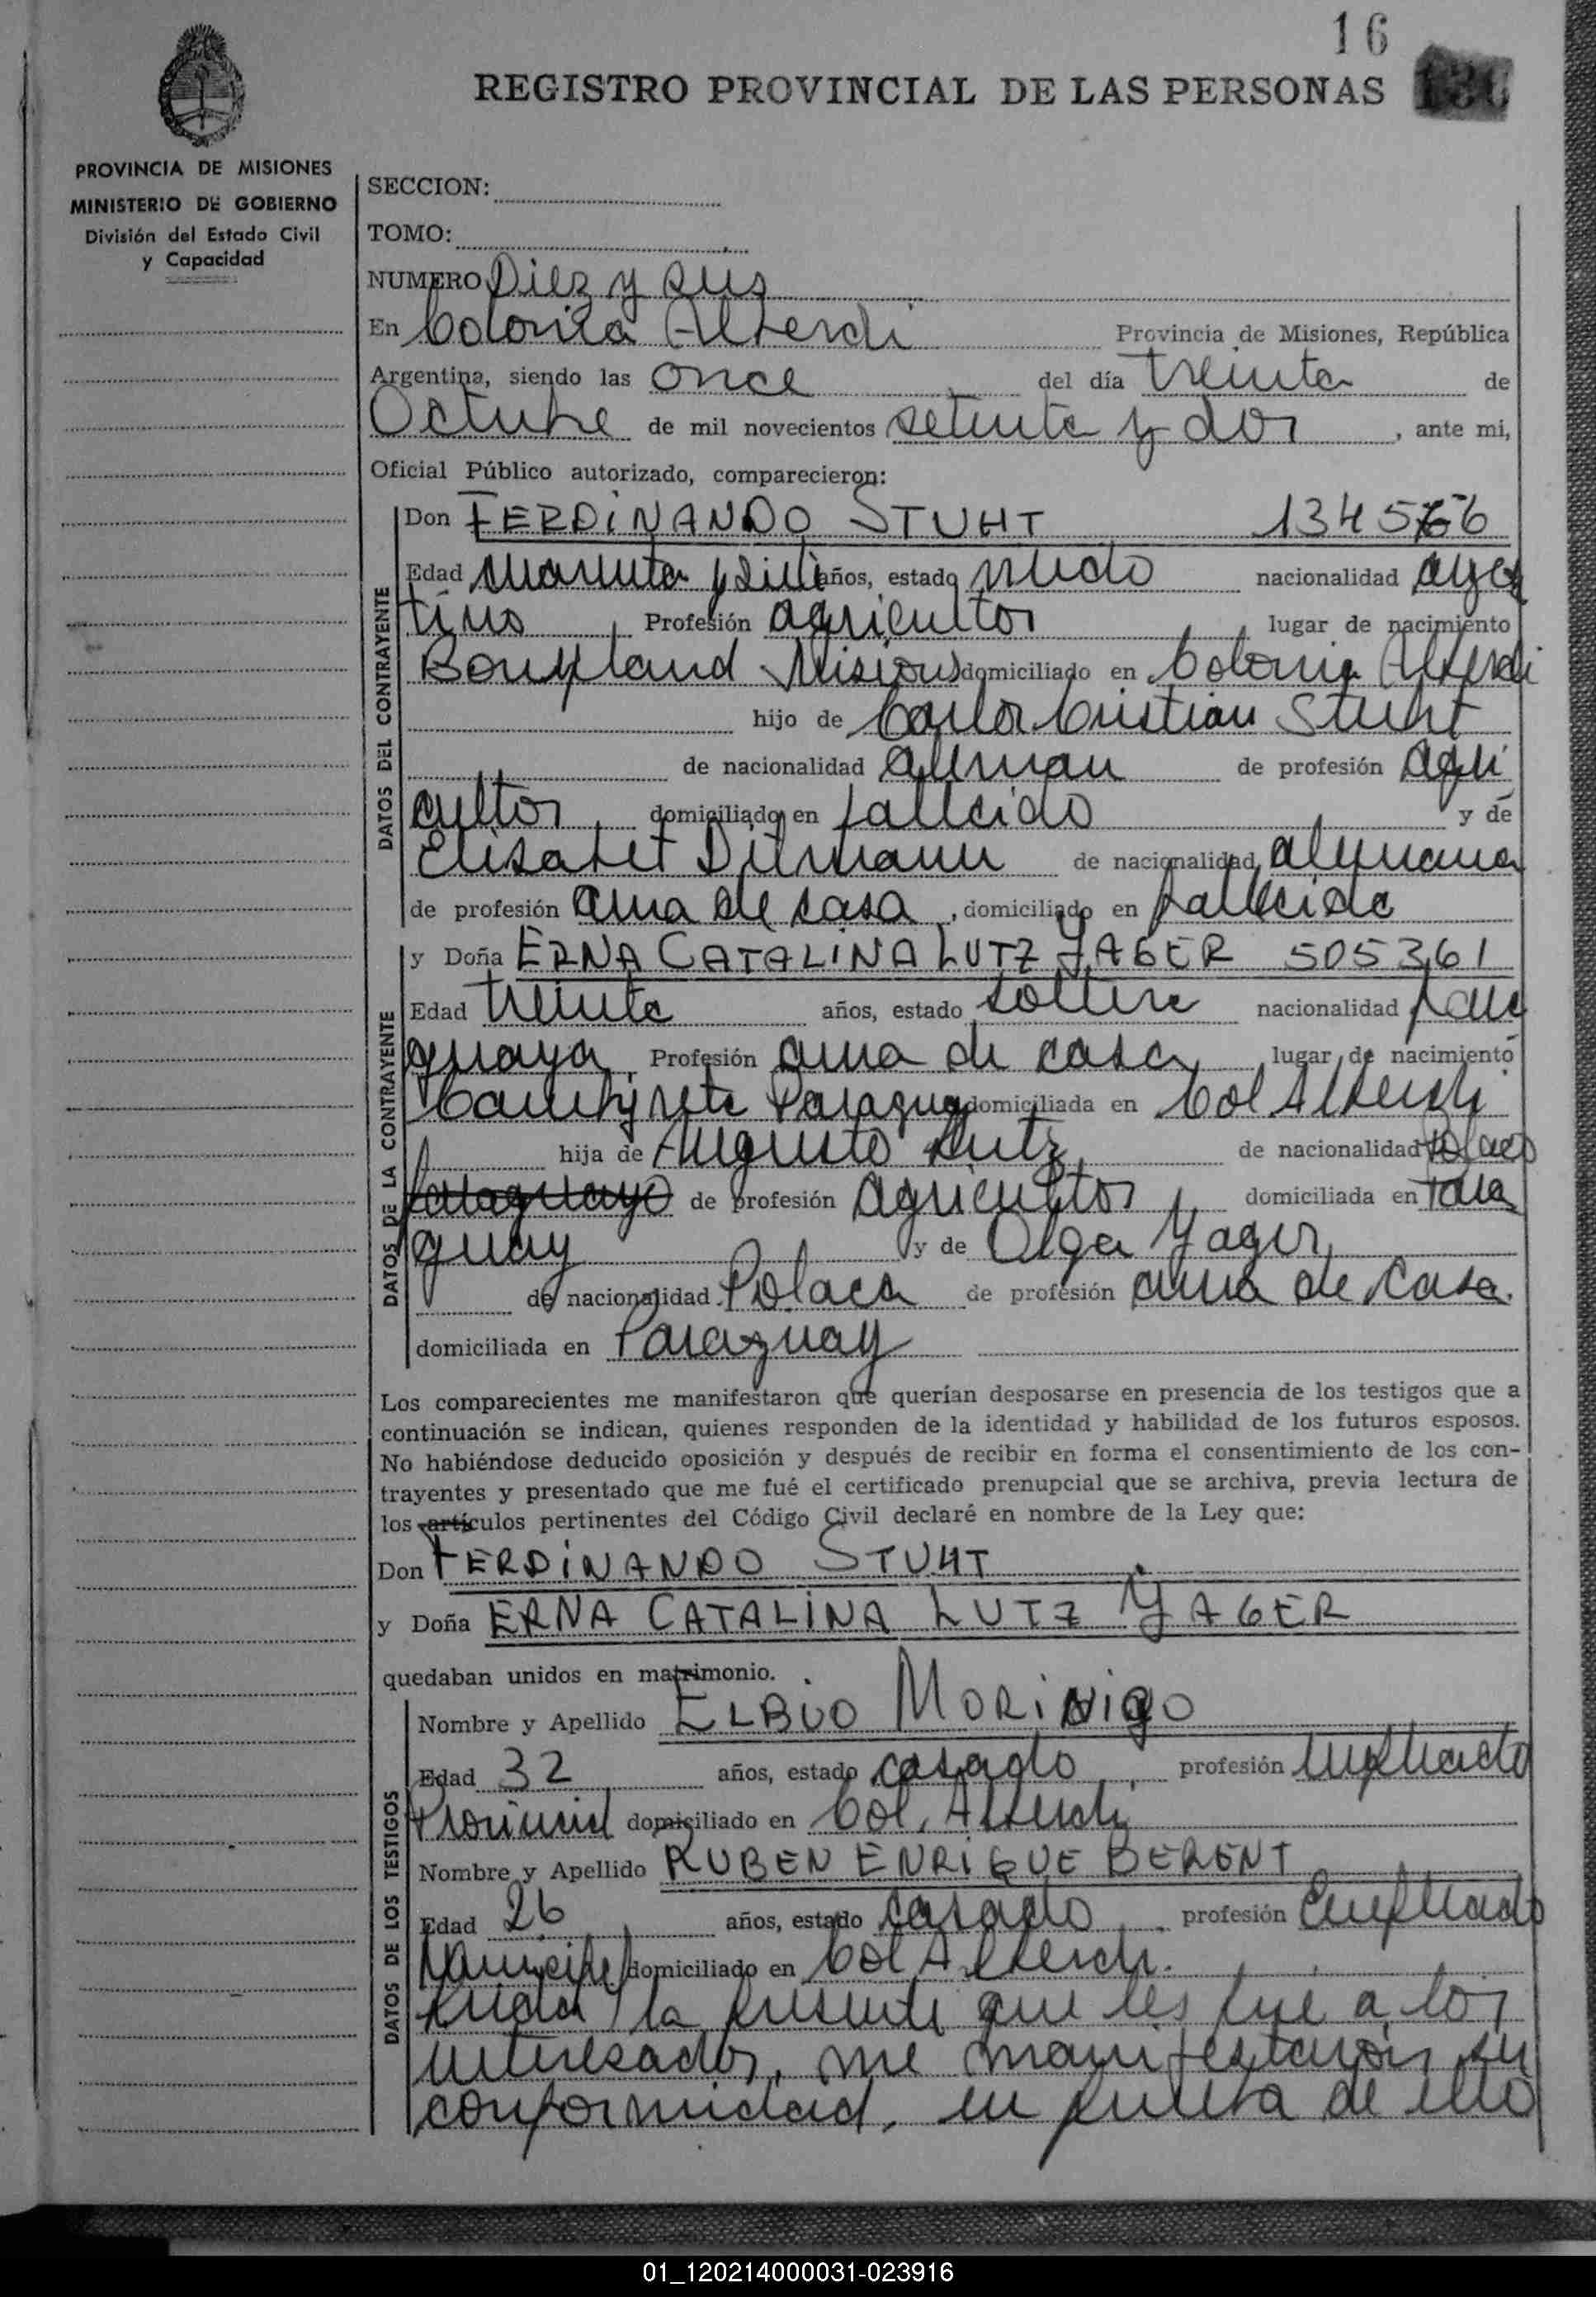 16
REGISTRO PROVINCIAL DE LAS PERSONAS
PROVINCIA DE MISIONES
MINISTERIO DE GOBIERNO
División del Estado Civil
y Capacidad
SECCION:
TOMO:
NUMERO Diez y seis
En Colonia Alberdi Provincia de Misiones, República
Argentina, siendo las once del día treinta de
Octubre de mil novecientos setenta y dos, ante mi,
Oficial Público autorizado, comparecieron:
DATOS DEL CONTRAYENTE
Don FERDINANDO STUHT
Edad años, estado viudo nacionalidad argen
tino Profesión agricultor lugar de nacimiento
Bompland Misiones domiciliado en Colonia Alberdi
hijo de Carlos Cristian Stuht
de nacionalidad aleman de profesión agri
cultor domiciliado en fallecido y de
Elisabet Dilmann de nacionalidad alemana
de profesión ama de casa, domiciliado en fallecida
DATOS DE LA CONTRAYENTE
y Doña ERNA CATALINA LUTZ YAGER 505361
Edad treinta años, estado soltera nacionalidad para
guaya Profesión ama de casa lugar de nacimiento
Cambyreta Paraguay domiciliada en Col Alberdi
hija de Augusto Lutz de nacionalidad Polaco
paraguayo de profesión agricultor domiciliada en Para
guay y de Olga Yager
de nacionalidad Polaca de profesión ama de casa.
domiciliada en Paraguay
Los comparecientes me manifestaron que querían desposarse en presencia de los testigos que a
continuación se indican, quienes responden de la identidad y habilidad de los futuros esposos.
No habiéndose deducido oposición y después de recibir en forma el consentimiento de los con-
trayentes y presentado que me fué el certificado prenupcial que se archiva, previa lectura de
los artículos pertinentes del Código Civil declaré en nombre de la Ley que:
Don FERDINANDO STUHT
y Doña ERNA CATALINA LUTZ YAGER
quedaban unidos en matrimonio.
DATOS DE LOS TESTIGOS
Nombre y Apellido ELBIO MORINIGO
Edad 32 años, estado casado, profesión empleado
Provincial domiciliado en Col. Alberdi
Nombre y Apellido RUBEN ENRIQUE BERENT
Edad 26 años, estado casado, profesión Empleado
Municipal domiciliado en Col Alberdi.
la presente que les fue a los
interesados, me manifestaron su
conformidad, en prueba de ello
01_120214000031-023916